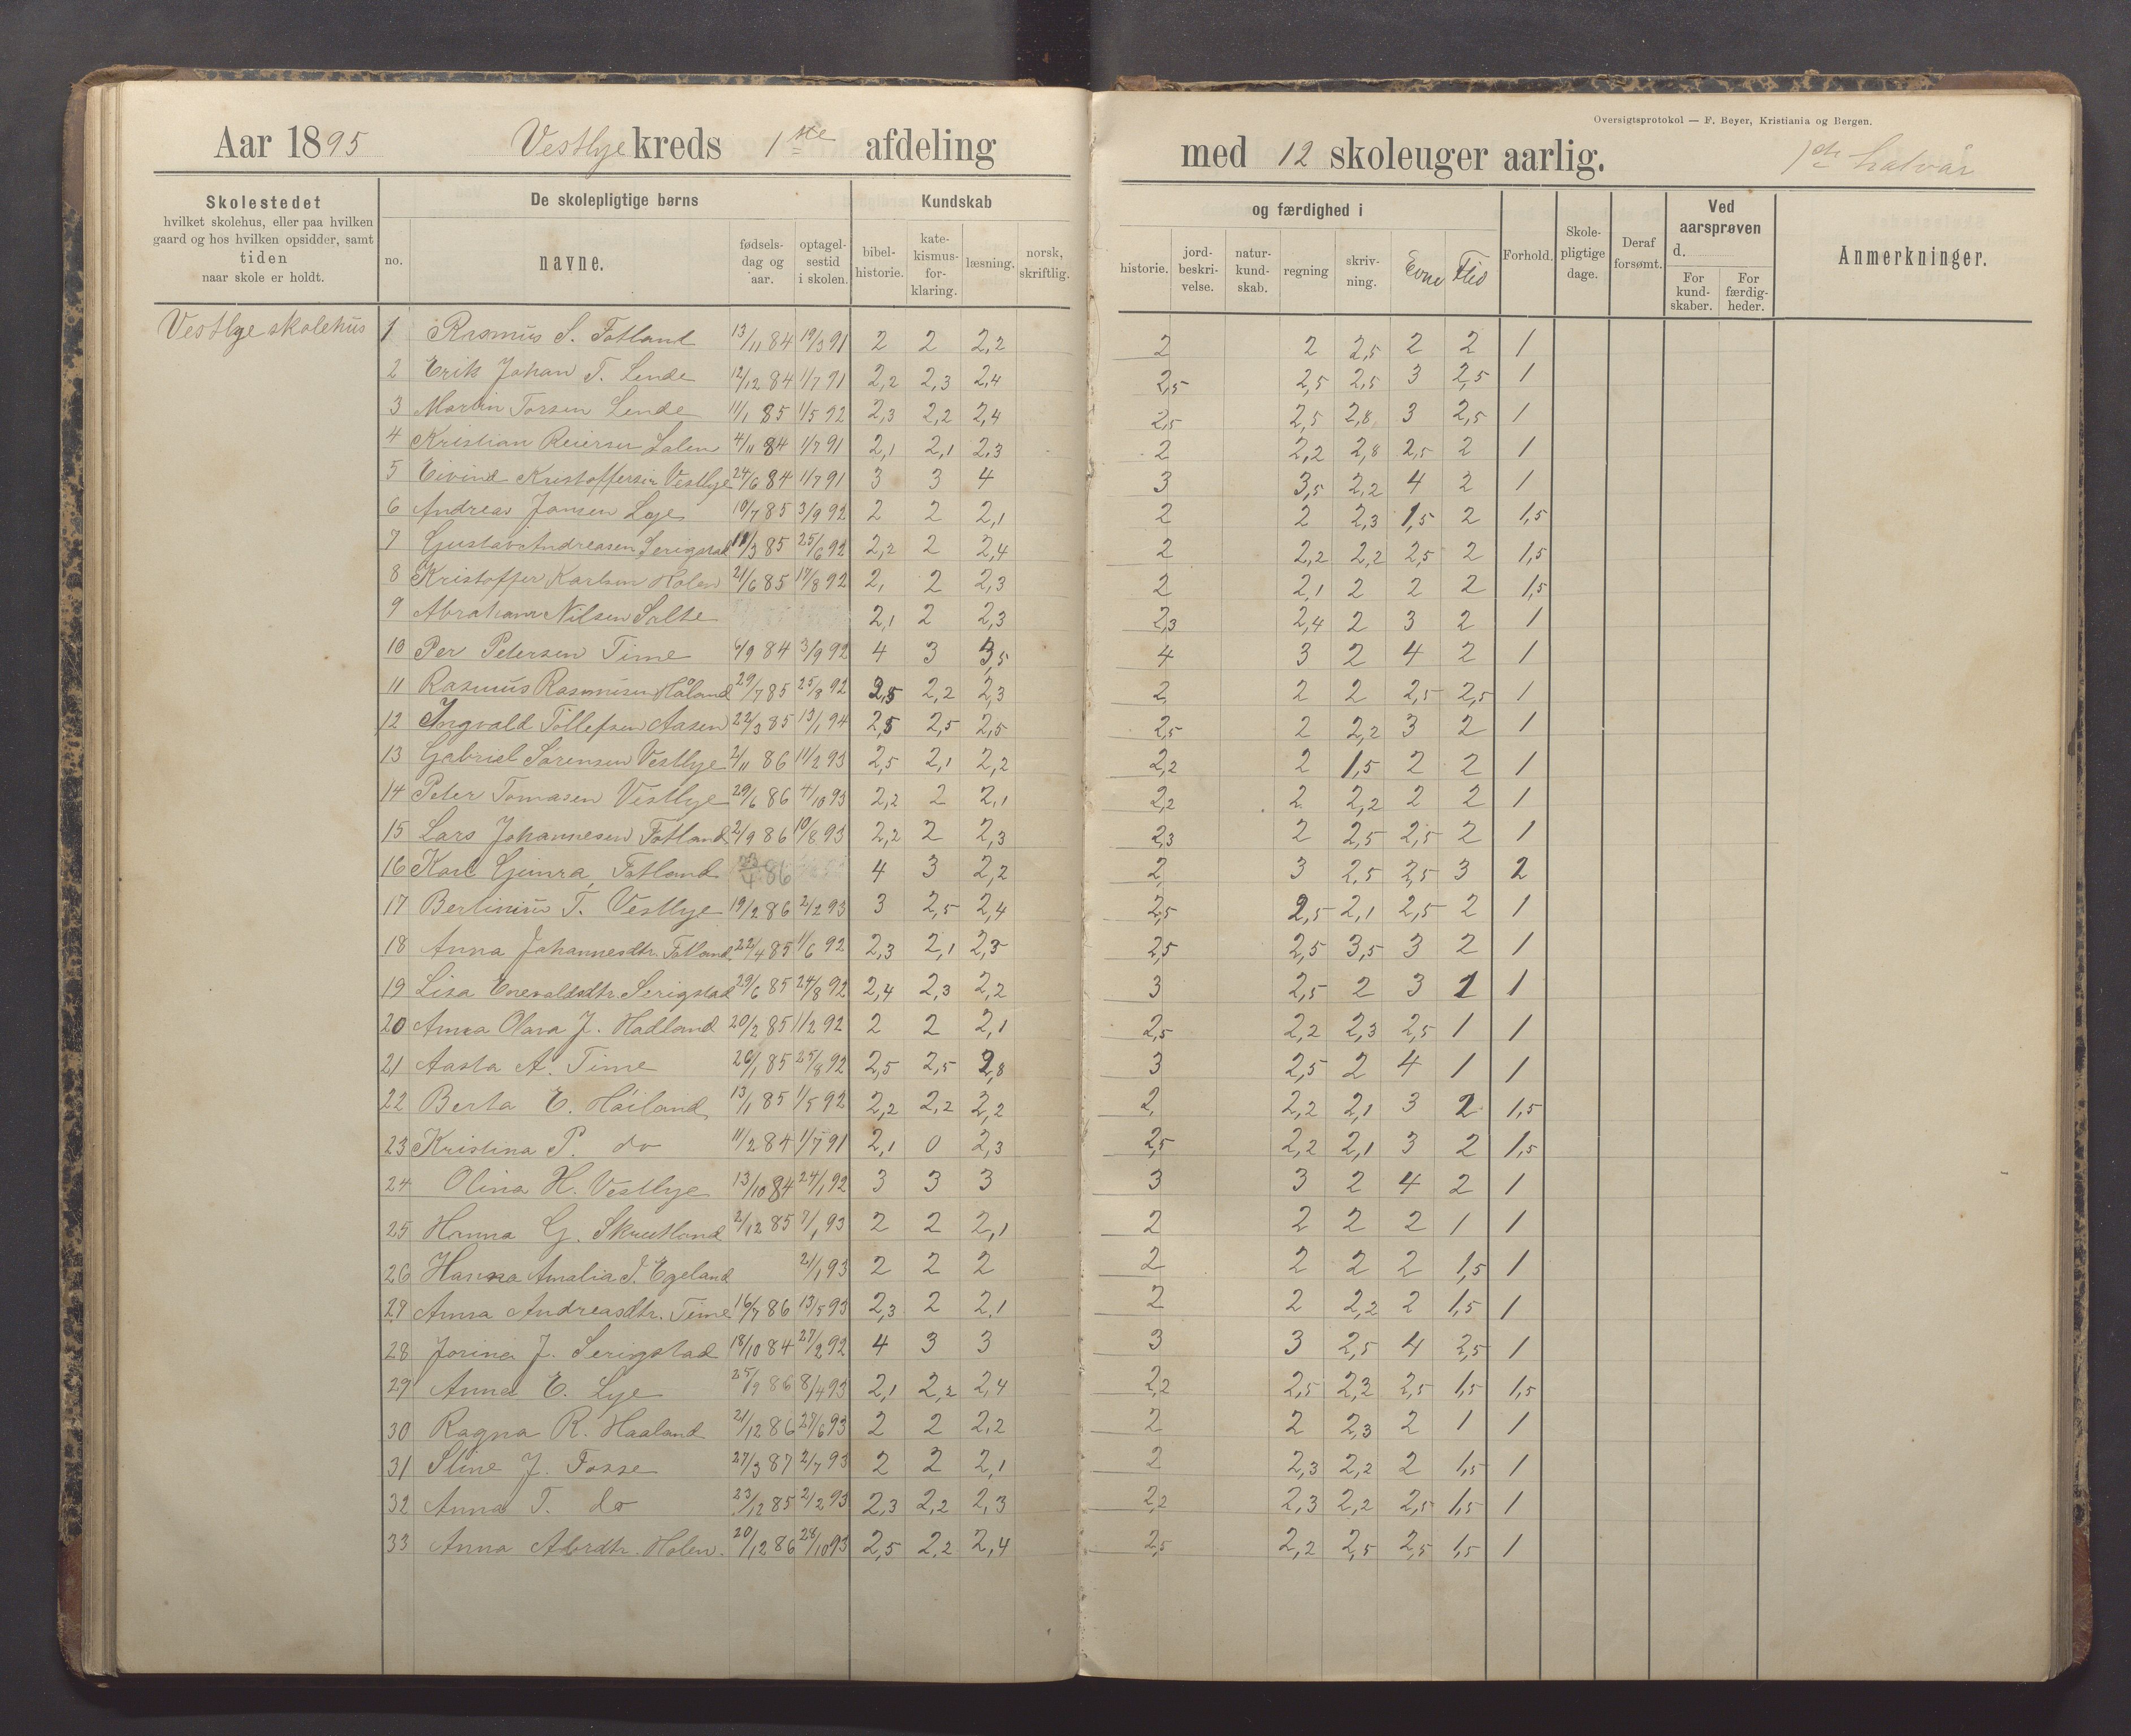 Oversigtsprotokol — F. Beyer, Kristiania og Bergen.
Aar 1895 Vestlye kreds 1ste afdeling med 12 skoleuger aarlig. 1ste halvår
Skolestedet
hvilket skolehus, eller paa hvilken
gaard og hos hvilken opsidder, samt
tiden
naar skole er holdt.
De skolepligtige børns
no. navne. fødsels-dag og aar. optagel-sestid i skolen.
Kundskab og færdighed i
bibel-historie. kate-kismus-for-klaring. læsning. norsk, skriftlig. historie. jord-beskri-velse. natur-kund-skab. regning skriv-ning. Evne Flid
Forhold. Skole-pligtige dage. Deraf forsømt.
Ved aarsprøven d.
For kund-skaber. For færdig-heder.
Anmerkninger.
Vestlye skolehus
1 Rasmus S. Fotland 13/11 84 19/3 91 2 2 2,2 2 2 2,5 2 2 1
2 Erik Johan T. Lende 12/12 84 1/7 91 2,2 2,3 2,4 2,5 2,5 2,5 3 2,5 1
3 Martin Torsen Lende 11/1 85 1/5 92 2,3 2,2 2,4 2,5 2,5 2,8 3 2,5 1
4 Kristian Reiersen 4/11 84 1/7 91 2,1 2,1 2,3 2 2,2 2,8 2,5 2 1
5 Eivind Kristoffersen Vestlye 24/6 84 1/7 91 3 3 4 3 3,5 2,2 4 2 1
6 Andreas Jansen Lye 10/7 85 3/9 92 2 2 2,1 2 2 2,3 1,5 2 1,5
7 Gustav Andreasen Serigstad 11/3 85 25/6 92 2,2 2 2,4 2 2,2 2,2 2,5 2 1,5
8 Kristoffer Karlsen Holen 21/6 85 17/8 92 2, 2 2,3 2 2,1 2 2 2 1,5
9 Abraham Nilsen Salte 2,1 2 2,3 2,3 2,4 2 3 2 1
10 Per Petersen Time 6/9 84 3/9 92 4 3 3,5 4 3 2 4 2 1
11 Rasmus Rasmusen Håland 29/7 85 25/8 92 2,5 2,2 2,3 2 2 2 2,5 2,5 1
12 Ingvald Tollefsen Aasen 22/3 85 13/1 94 2,5 2,5 2,5 2,5 2 2,2 3 2 1
13 Gabriel Sørensen Vestlye 2/11 86 11/2 93 2,5 2,1 2,2 2,2 2 1,5 2 2 1
14 Peter Tomasen Vestlye 29/6 86 4/10 93 2,2 2 2,1 2,2 2 2,2 2 2 1
15 Lars Johannesen Fotland 2/9 86 10/8 93 2,2 2 2,3 2,3 2 2,5 2,5 2 1
16 Karl Fotland 23/4 86 4 3 2,2 2, 3 2,5 2,5 3 2
17 Bertinius T. Vestlye 19/2 86 2/2 93 3 2,5 2,4 2,5 2,5 2,1 2,5 2 1
18 Anna Johannesdtr. Fotland 22/4 85 1/6 92 2,3 2,1 2,5 2,5 2,5 3,5 3 2 1
19 Lisa Enevaldsdtr. Serigstad 29/6 85 24/8 92 2,4 2,3 2,2 3 2,5 2 3 1 1
20 Anna Olava J. Hadland 20/2 85 1/2 92 2 2 2,1 2,5 2,2 2,3 2,5 1 1
21 Aasta A. Time 26/1 85 25/8 92 2,5 2,5 2,8 3 2,5 2 4 1 1
22 Berta E. Håiland 13/1 85 1/5 92 2,2 2,2 2,2 2, 2,2 2,1 3 2 1,5
23 Kristina P. do 11/2 84 1/7 91 2,1 0 2,3 2,5 2,2 2,1 3 2 1,5
24 Olina H. Vestlye 13/10 84 24/1 92 3 3 3 3 3 2 4 2 1
25 Hanna G. Skrutland 2/12 85 7/1 93 2 2 2,1 2 2 2 2 1 1
26 Hanna Amalia J. Egeland 2/1 93 2 2 2 2 2 2 2 1,5 1
27 Anna Andreasdtr. Time 16/7 86 13/5 93 2,3 2 2,1 2 2 2,2 2 1,5 1
28 Jorina J. Serigstad 18/10 84 27/2 92 4 3 3 3 3 2,5 4 2,5 1
29 Anna E. Lye 25/9 86 8/4 93 2,1 2,2 2,4 2,2 2,5 2,2 2,5 1,5 1,5
30 Ragna R. Haaland 21/12 86 27/6 93 2 2 2,2 2 2 2,3 2 1 1
31 Stine J. Fosse 27/3 87 2/7 93 2 2 2,1 2 2,3 2,2 2 1,5 1
32 Anna T. do 23/12 85 2/2 93 2,3 2,2 2,3 2,2 2,3 2,2 2,5 1,5 1
33 Anna Abrdtr. Holen. 20/12 86 28/10 93 2,5 2,2 2,4 2,5 2,2 2,5 2,5 1,5 1